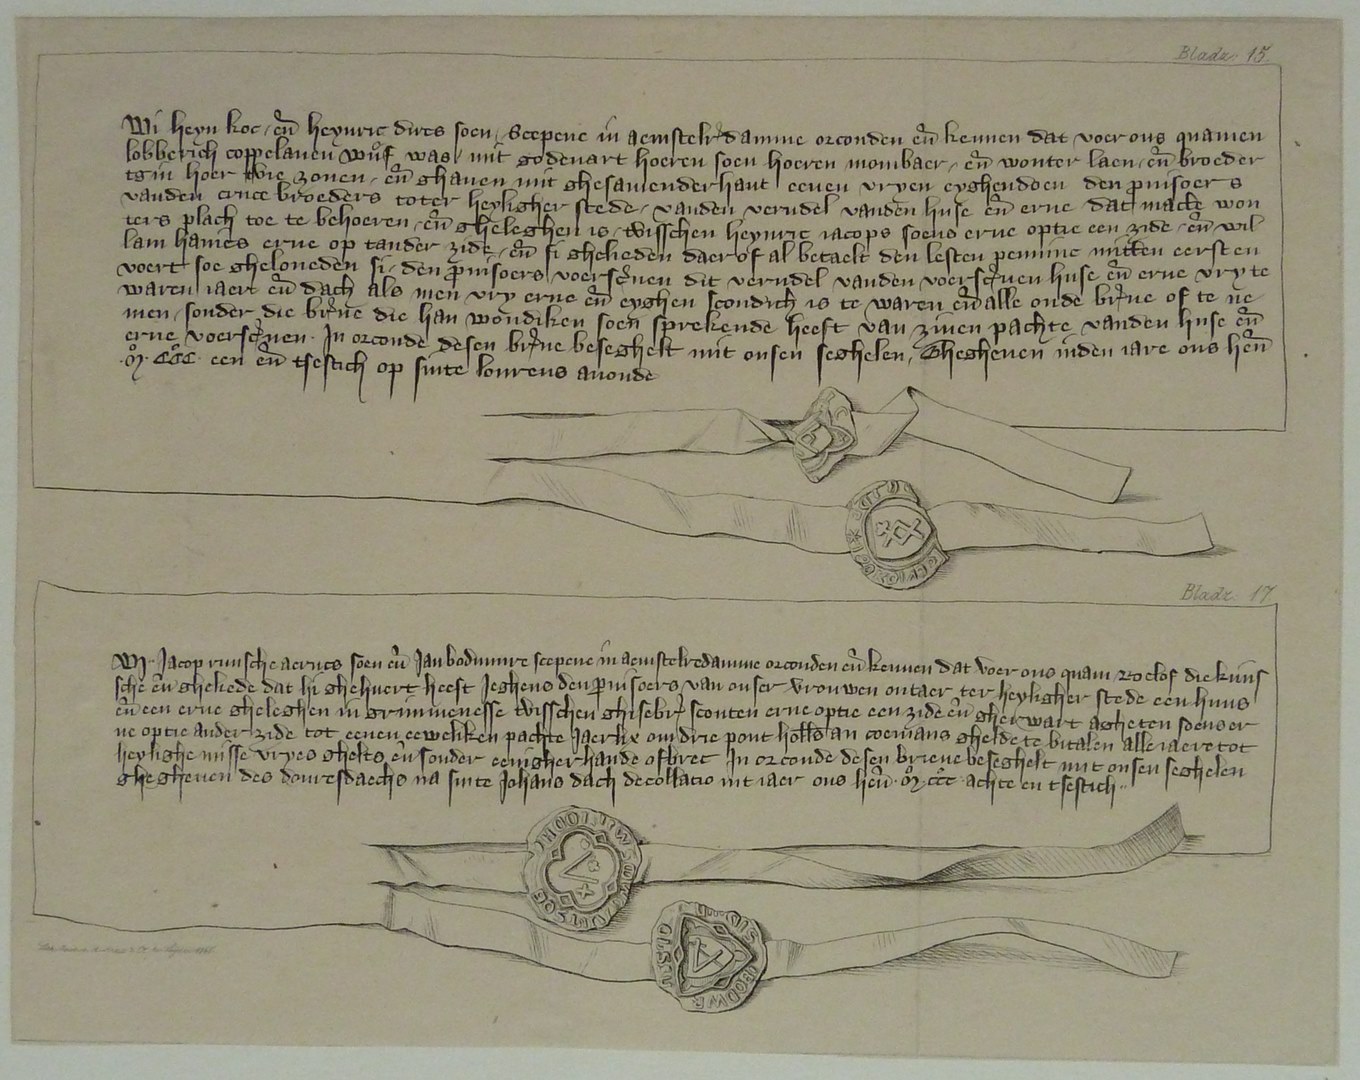 Bladz. 15
Wi heyn koc en heynric dircs soen scepene in aemstelredamme orconden en kennen dat voer ons quamen
lobberich coppelauen wijf was mit godeuart hoeren soen hoeren mombaer en wouter laen en broeder
hoer zonen en ghauen mit ghesamenderhant eenen vryen eyghendoen den pruisoers
vanden cruce broeders toter heyligher stede vanden verndel vanden huse en erue dat machte won
ters plach toe te behoeren en gheleghen is twisschen heynric iacops soens erue optie een zide en wil
lam hanies erue op tander zide en si ghelieden daer of al betaelt den lesten pennine mitten eersten
voert soe gheloueden si den pruisoers voerscreuen dit verndel vanden voerscreuen huse en erue vry te
waren iaer en dach als men vry erue en eyghen sculdich is te waren en alle oude briue of te ne
men sonder die briue die han soen sprekende heeft van zinen pachte vanden huse en
erue voerscreuen In orconde desen briue beseghelt mit onsen seghelen Ghegheuen inden iare ons heren
M CCC een en tsestich op sinte lourens auonde
Bladz. 17
Wi Jacop runsche aernts soen en Jan bodinnre scepene in aemstelredamme orconden en kennen dat voer ons quam roelof die kuns
sche en gheliede dat hi ghehuert heeft Jeghens den pruisoers van onser vrouwen outaer ter heyligher stede een huus
en een erue gheleghen in grimmenesse twisschen ghisebr scouten erue optie een zide en gherwart agheten soens er
ue optie ander zide tot eenen eeweliken pachte Jaerlix om drie pont holls an coemans ghelde te bitalen alle iaere tot
heylighe misse vryes ghelts en sonder eenigherhande ofbrec In orconde desen brieue beseghelt mit onsen seghelen
ghegheuen des donresdaechs na sinte Johans dach decollatio int iaer ons heren M CCC achte en tsestich